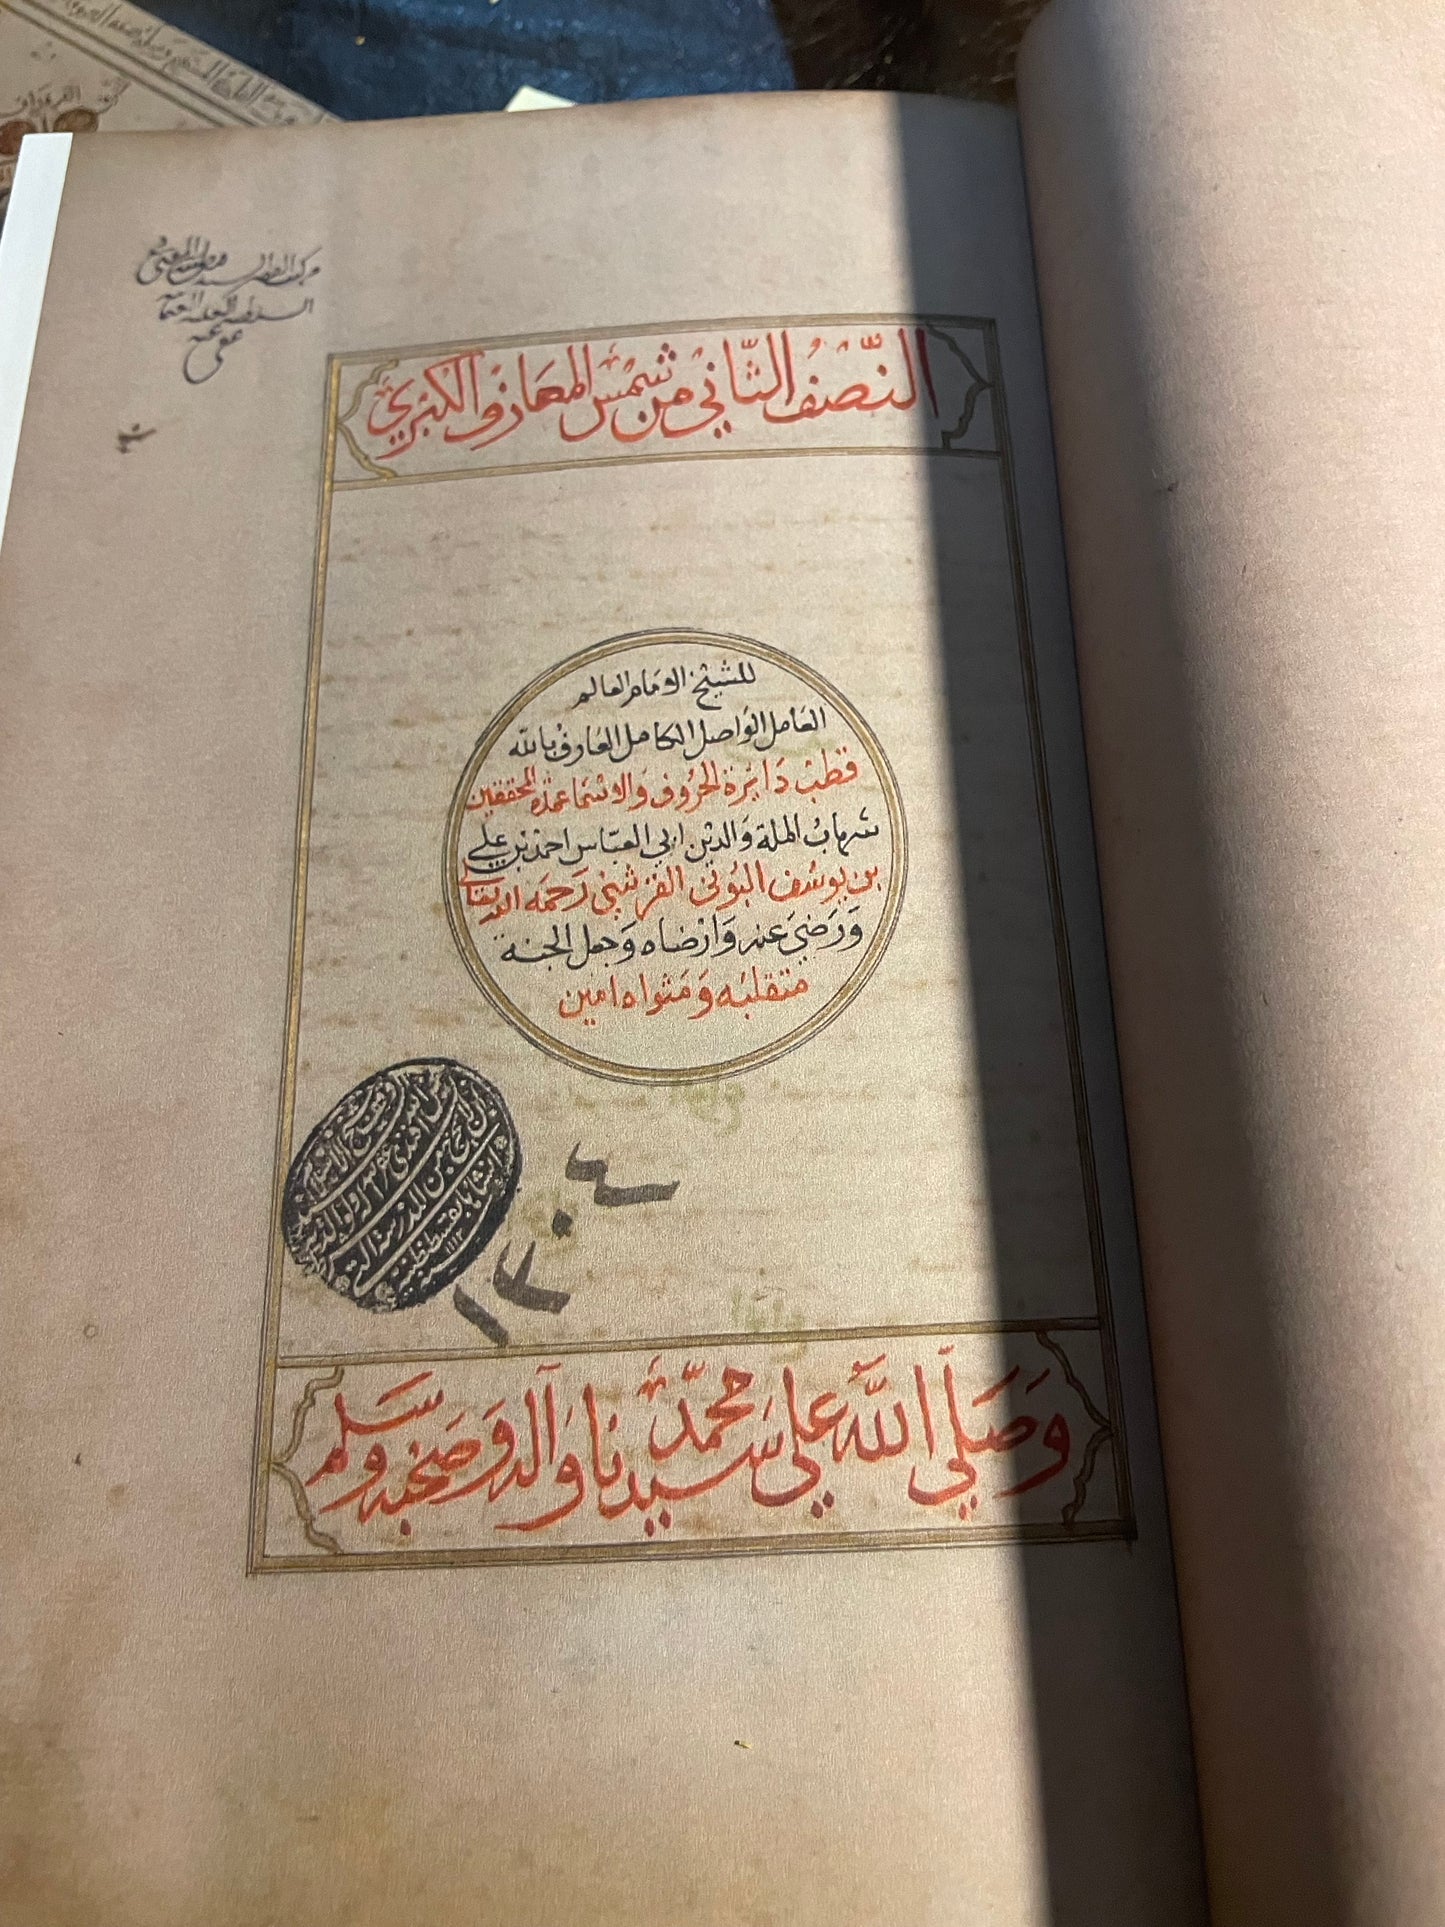 النِّصْفُ الثَّانِي مِنْ شَمْسِ المَعَارِفِ الكُبْرَي
للشيخ الامام العالم
العَامل الوَاصل الكامل العَارف بالله
قطب دَايرة الحُروف وَالاسْمَا عمدة المحققين
شهابُ الملة وَالدين ابي العبّاس احمد بن علي
بن يوسُف البُوني القرشي رَحمَه الله تعالى
وَرَضيَ عنه وَارْضاه وَجعل الجنة
متقلبَه وَمَثواه امين
وَصَلَّي اللَّهُ عَلي سَيدنا محمّد وَآله وَصَحبه وسَلم